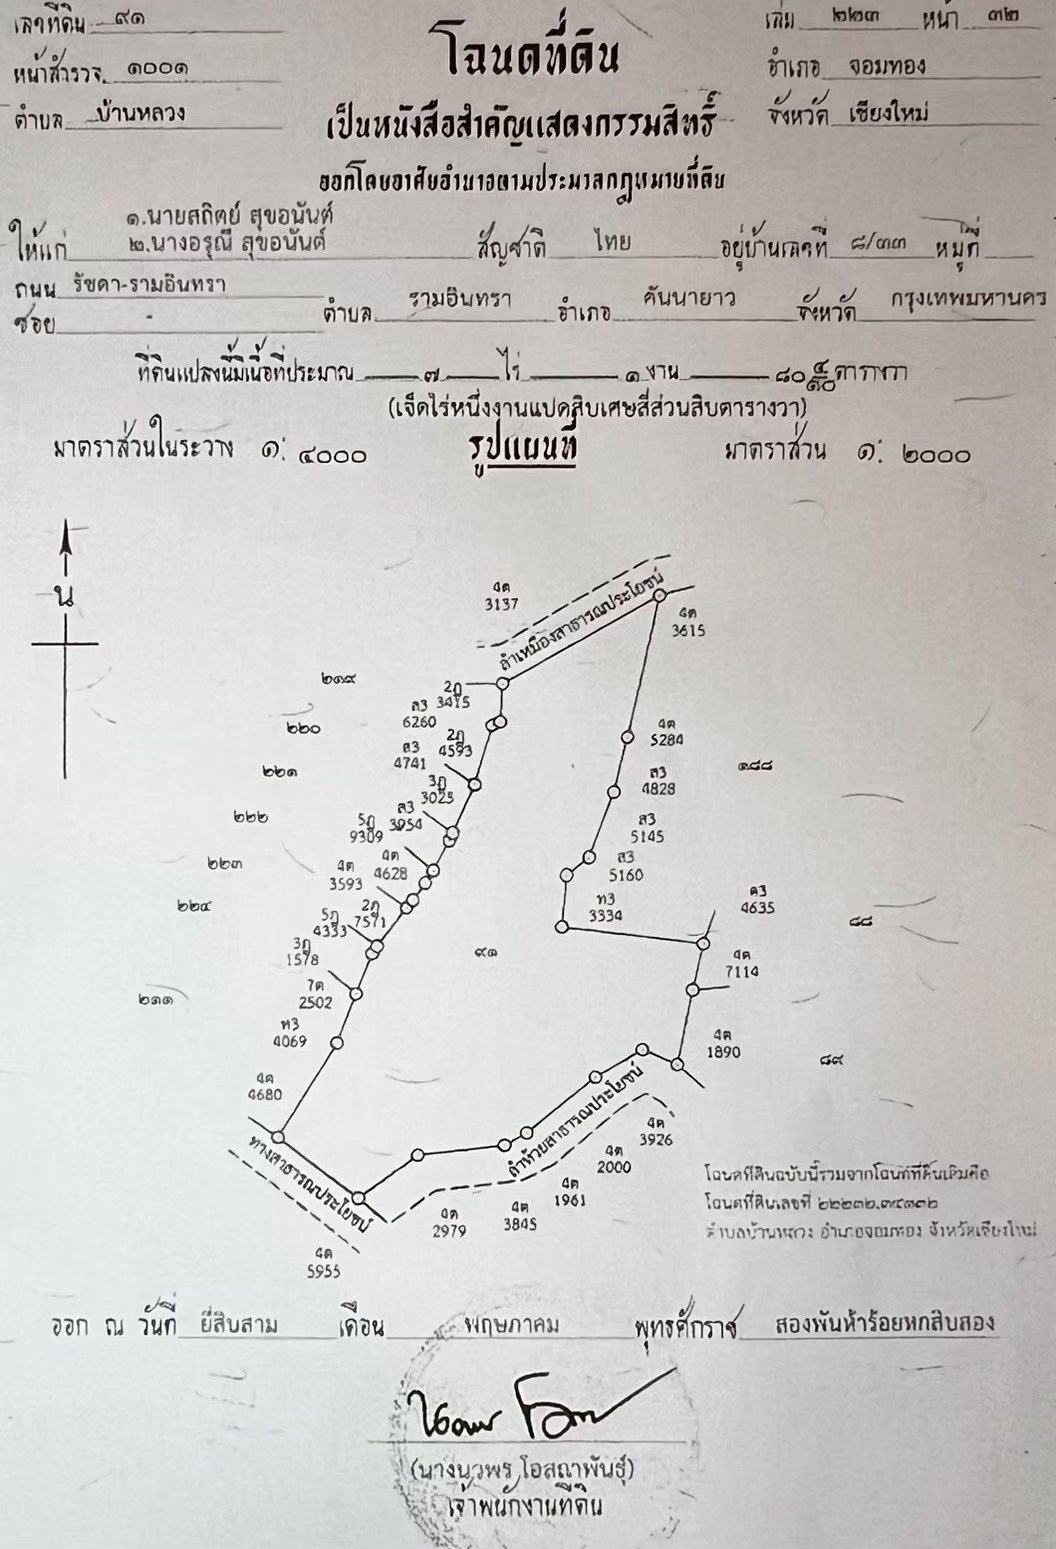 เลขที่ดิน ๙๑
เล่ม ๒๒๓ หน้า ๓๒
โฉนดที่ดิน
หน้าสำรวจ ๑๐๐๑
อำเภอ จอมทอง
ตำบล บ้านหลวง
เป็นหนังสือสำคัญแสดงกรรมสิทธิ์
จังหวัด เชียงใหม่
ออกโดยอาศัยอำนาจตามประมวลกฎหมายที่ดิน
๑.นายสถิตย์ สุขอนันต์
ให้แก่ ๒.นางอรุณี สุขอนันต์ สัญชาติ ไทย อยู่บ้านเลขที่ ๘/๓๓ หมู่ที่
ถนน รัชดา-รามอินทรา
ซอย - ตำบล รามอินทรา อำเภอ คันนายาว จังหวัด กรุงเทพมหานคร
ที่ดินแปลงนี้มีเนื้อที่ประมาณ ๗ ไร่ ๑ งาน ๘๐ ๔/๑๐ ตารางวา
(เจ็ดไร่หนึ่งงานแปดสิบเศษสี่ส่วนสิบตารางวา)
มาตราส่วนในระวาง ๑: ๔๐๐๐ รูปแผนที่ มาตราส่วน ๑: ๒๐๐๐
น
ลำเหมืองสาธารณประโยชน์
4ต
3137
4ต
3615
๒๑๙
2ฎ
3415
ส3
6260
๒๒๐
2ฎ
4593
4ต
5284
ส3
4741
๒๒๑
๑๘๘
3ฎ
3025
ส3
4828
ส3
3954
๒๒๒
5ฎ
9309
ส3
5145
๒๒๓
4ต
4628
ส3
5160
4ต
3593
๒๒๔
2ฎ
7571
ท3
3334
ต3
4635
5ฎ
4333
๘๘
3ฎ
1578
๙๑
4ต
7114
7ต
2502
๒๓๑
ท3
4069
4ต
1890
๘๙
4ต
4680
ทางสาธารณประโยชน์
ลำห้วยสาธารณประโยชน์
4ต
3926
4ต
2000
4ต
1961
4ต
3845
4ต
2979
4ต
5955
โฉนดที่ดินฉบับนี้รวมจากโฉนดที่ดินเดิมคือ
โฉนดที่ดินเลขที่
ตำบลบ้านหลวง อำเภอจอมทอง จังหวัดเชียงใหม่
ออก ณ วันที่ ยี่สิบสาม เดือน พฤษภาคม พุทธศักราช สองพันห้าร้อยหกสิบสอง
(นางนวพร โอสถาพันธุ์)
เจ้าพนักงานที่ดิน